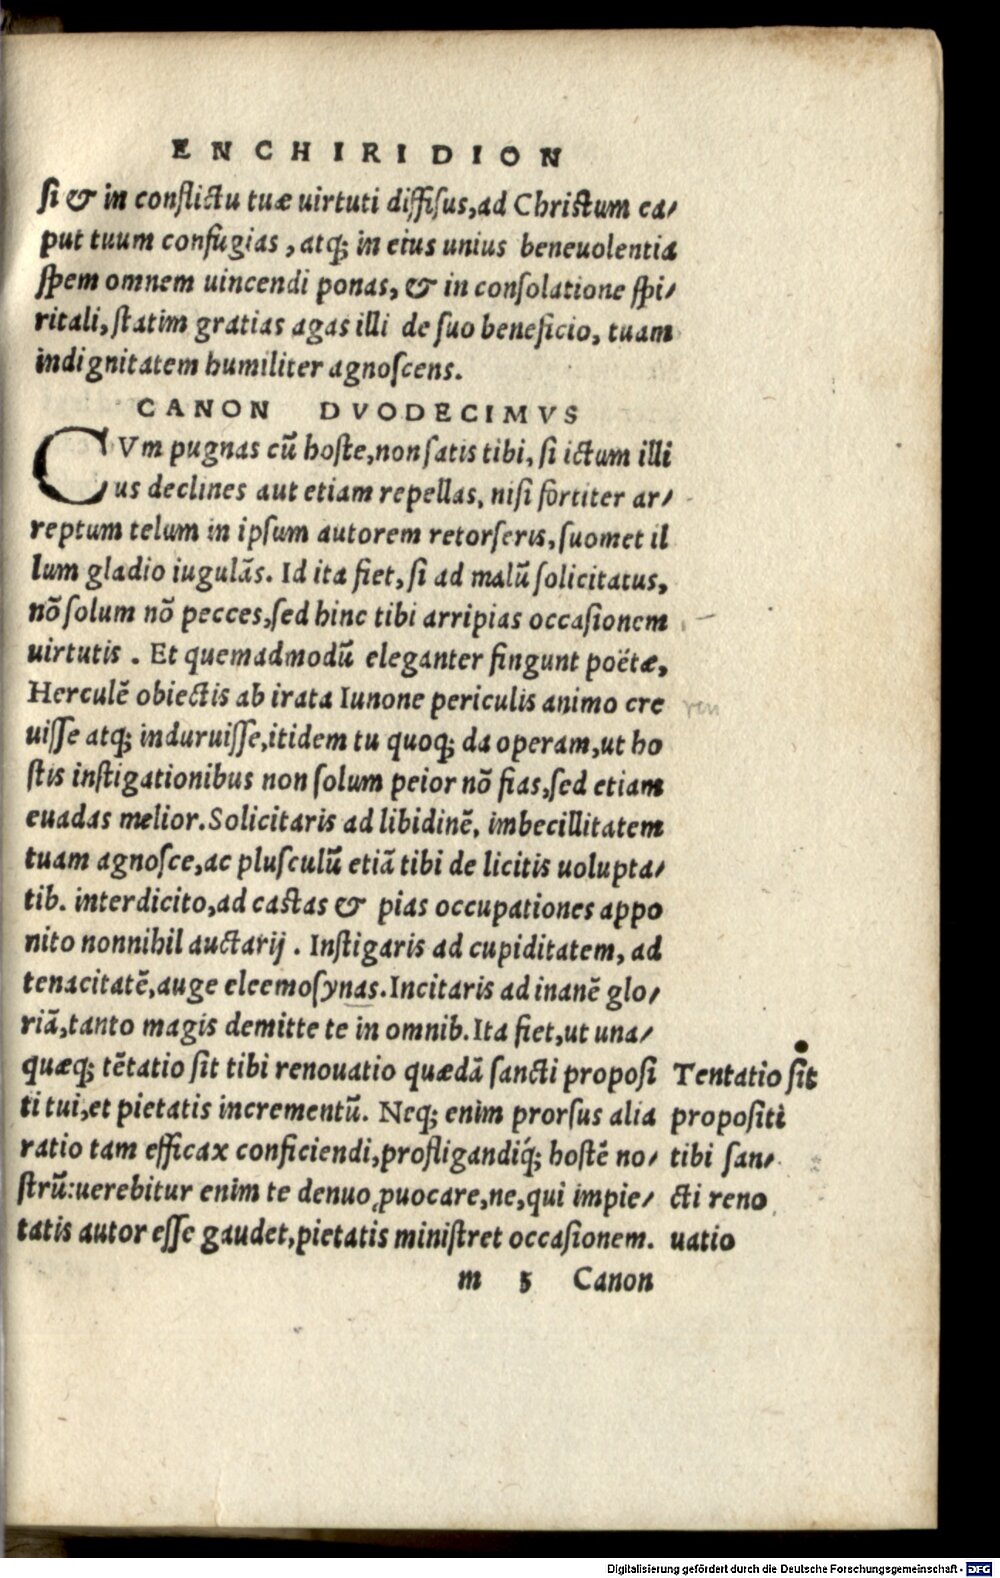 ENCHIRIDION
ſi & in conflictu tuæ uirtuti diffiſus, ad Chriſtum ca/
put tuum confugias, atq; in eius unius beneuolentia
ſpem omnem uincendi ponas, & in conſolatione ſpi/
ritali, ſtatim gratias agas illi de ſuo beneficio, tuam
indignitatem humiliter agnoſcens.
CANON DVODECIMVS
CVm pugnas cũ hoſte, non ſatis tibi, ſi ictum illi
us declines aut etiam repellas, niſi fortiter ar/
reptum telum in ipſum autorem retorſeris, ſuomet il
lum gladio iugulãs. Id ita fiet, ſi ad malũ ſolicitatus,
nõ ſolum nõ pecces, ſed hinc tibi arripias occaſionem
uirtutis. Et quemadmodũ eleganter fingunt poëtæ,
Herculẽ obiectis ab irata Iunone periculis animo cre
uiſſe atq; induruiſſe, itidem tu quoq; da operam, ut ho
ſtis inſtigationibus non ſolum peior nõ fias, ſed etiam
euadas melior. Solicitaris ad libidinẽ, imbecillitatem
tuam agnoſce, ac pluſculũ etiã tibi de licitis uolupta/
tib. interdicito, ad caſtas & pias occupationes appo
nito nonnihil auctarij. Inſtigaris ad cupiditatem, ad
tenacitatẽ, auge eleemoſynas. Incitaris ad inanẽ glo/
riã, tanto magis demitte te in omnib. Ita fiet, ut una/
quæq; tẽtatio ſit tibi renouatio quædã ſancti propoſi
ti tui, et pietatis incrementũ. Neq; enim prorſus alia
ratio tam efficax conficiendi, profligandiq́; hoſtẽ no/
ſtrũ: uerebitur enim te denuo ꝓuocare, ne, qui impie/
tatis autor eſſe gaudet, pietatis miniſtret occaſionem.
Tentatio ſit
propoſiti
tibi ſan/
cti reno
uatio
m 5 Canon
Digitalisierung gefördert durch die Deutsche Forschungsgemeinschaft - DFG